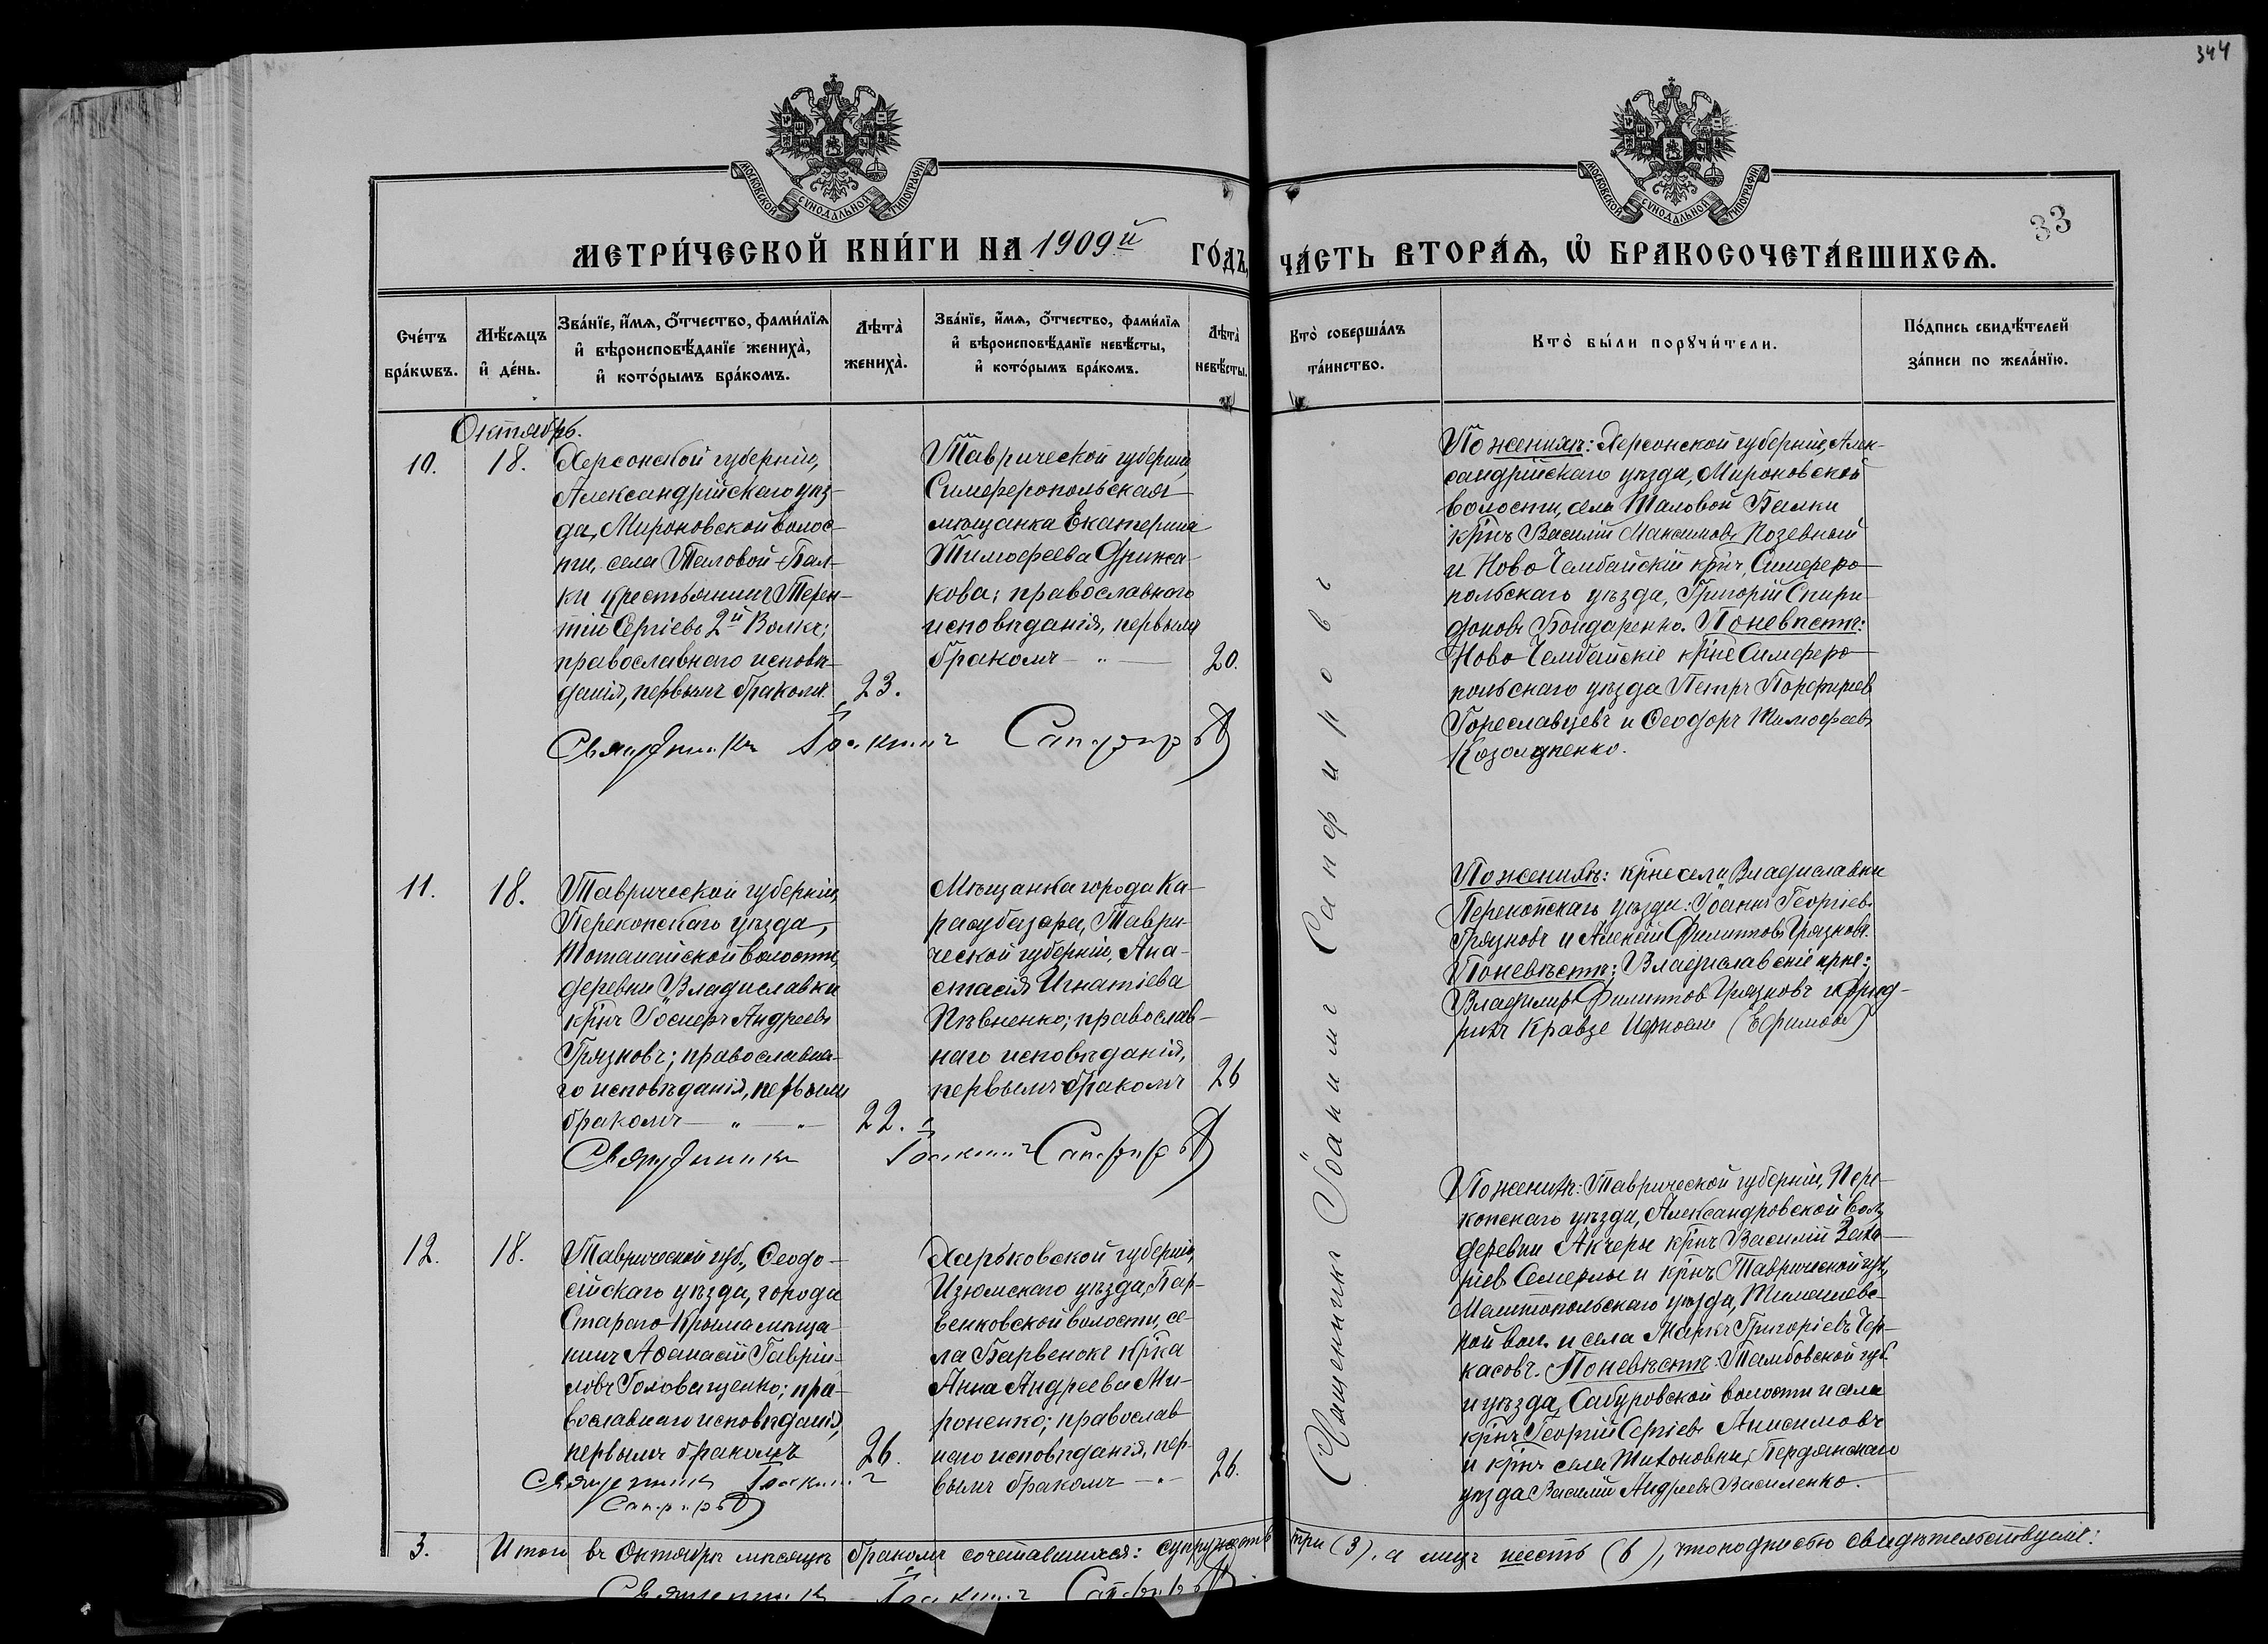 344
МОСКОВСКОЙ СУНОДАЛЬНОЙ ТИПОГРАФІИ
МОСКОВСКОЙ СУНОДАЛЬНОЙ ТИПОГРАФІИ
33
МЕТРИ́ЧЕСКОЙ КНИ́ГИ НА 1909й ГО́ДЪ, ЧА́СТЬ ВТОРА́Ѧ, Ѡ БРАКОСОЧЕТА́ВШИХСѦ.
Сче́тъ бра́кѡвъ.
Мѣ́сѧцъ и҆ де́нь.
Зва́нїе, и҆́мѧ, ѻ҆́тчество, фами́лїѧ
и҆ вѣроисповѣ́данїе жениха̀,
и҆ кото́рымъ бра́комъ.
Лѣта̀ жениха̀.
Зва́нїе, и҆́мѧ, ѻ҆́тчество, фами́лїѧ
и҆ вѣроисповѣ́данїе невѣ́сты,
и҆ кото́рымъ бра́комъ.
Лѣта̀ невѣ́сты.
Кто̀ соверша́лъ та́инство.
Кто̀ бы́ли порꙋчи́тели.
По́дпись свидѣ́телей
за́писи по жела́нїю.
Октябрь.
10.
18.
Херсонской губерніи,
Александрійскаго уѣз-
да, Мироновской волос-
ти, села Таловой-Бал-
ки крестьянинъ Терен-
тій Сергіевъ 2й Волкъ;
православнаго исповѣ-
данія, первымъ бракомъ.
23.
Таврической губерніи,
Симферопольская
мѣщанка Екатерина
Тимофеева
кова; православнаго
исповѣданія, первымъ
бракомъ - " -
20.
Священникъ Іоакимъ Сапфировъ
По женихѣ: Херсонской губерніи, Алек-
сандрійскаго уѣзда, Мироновской
волости, села Таловой Балки
крнъ Василій Максимовъ Позевной
и Ново Чембайскій крнъ, Симферо-
польскаго уѣзда, Григорій Спири-
доновъ Бондаренко. По невѣстѣ:
Ново Чембайскіе крне Симферо-
польскаго уѣзда Петръ Порфирьевъ
Гореславцевъ и Ѳеодоръ Тимофеевъ
11.
18.
Таврической губерніи,
Перекопскаго уѣзда,
Тотанайской волости,
деревни Владиславки
крнъ Андреевъ
Грязновъ; православна-
го исповѣданія, первымъ
бракомъ - " - " -
22.
Мѣщанка города Ка-
расубазара, Таври-
ческой губерніи, Ана-
стасія Игнатіева
Пѣвненко; православ-
наго исповѣданія,
первымъ бракомъ
26
Священникъ Іоакимъ Сапфировъ
По женихѣ: крне села Владиславки
Перекопскаго уѣзда: Іоаннъ Георгіевъ
Грязновъ и Алексій Филипповъ Грязновъ.
По невѣстѣ: Владиславскіе крне:
Владиміръ Филипповъ Грязновъ и Фрид-
рихъ Кравзе (Ефимовъ)
12.
18.
Таврической губ., Ѳеодо-
сійскаго уѣзда, города
Стараго-Крыма мѣща-
нинъ Аѳанасій Гавріи-
ловъ Головащенко; пра-
вославнаго исповѣданія,
первымъ бракомъ
26.
Харьковской губерніи,
Изюмскаго уѣзда, Бар-
венковской волости, се-
ла Барвенокъ крка
Анна Андреева Ми-
роненко; православ
наго исповѣданія, пер-
вымъ бракомъ - " -
26.
Священникъ Іоакимъ
Сапфировъ
По женихѣ: Таврической губерніи, Пере-
копскаго уѣзда, Александровской вол.,
деревни Акчеры крнъ Василій Заха-
ріевъ и крнъ Таврической губ.,
Мелитопольскаго уѣзда, Тимошевс-
кой вол. и села Маркъ Григоріевъ Чер-
касовъ. По невѣстѣ: Тамбовской губ.
и уѣзда, Сабуровской волости и села
крнъ Георгій Сергіевъ Анисимовъ
и крнъ села Тихоновки, Бердянскаго
уѣзда Василій Андреевъ Василенко.
Священникъ Іоакимъ Сапфировъ
3. Итого въ Октябрѣ мѣсяцѣ бракомъ сочетавшихся: супружествъ три (3), а лицъ шесть (6), что подписью свидѣтельствуемъ:
Священникъ Іоакимъ Сапфировъ